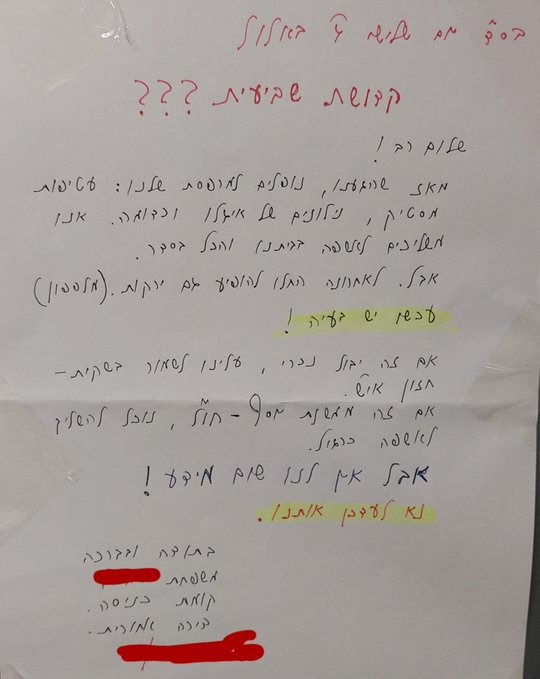 בס"ד יום שלישי ד' באלול
קדושת שביעית ???
שלום רב!
מאז שהגענו, נופלים למרפסת שלנו: עטיפות
מסטיק, ניילונים של איגלו וכדומה. אנו
משליכים לאשפה בביתנו והכל בסדר.
אבל. לאחרונה החלו להופיע גם ירקות. (מלפפון)
עכשו יש בעיה!
אם זה יבול נכרי, עלינו לשמור בשקית-
חזון אי"ש.
אם זה ממשנת יוסף - חו"ל, נוכל להשליך
לאשפה כרגיל.
אבל אין לנו שום מידע!
נא לעדכן אותנו.
בתודה ובברכה
משפחת
קומת כניסה.
דירה אחורית.